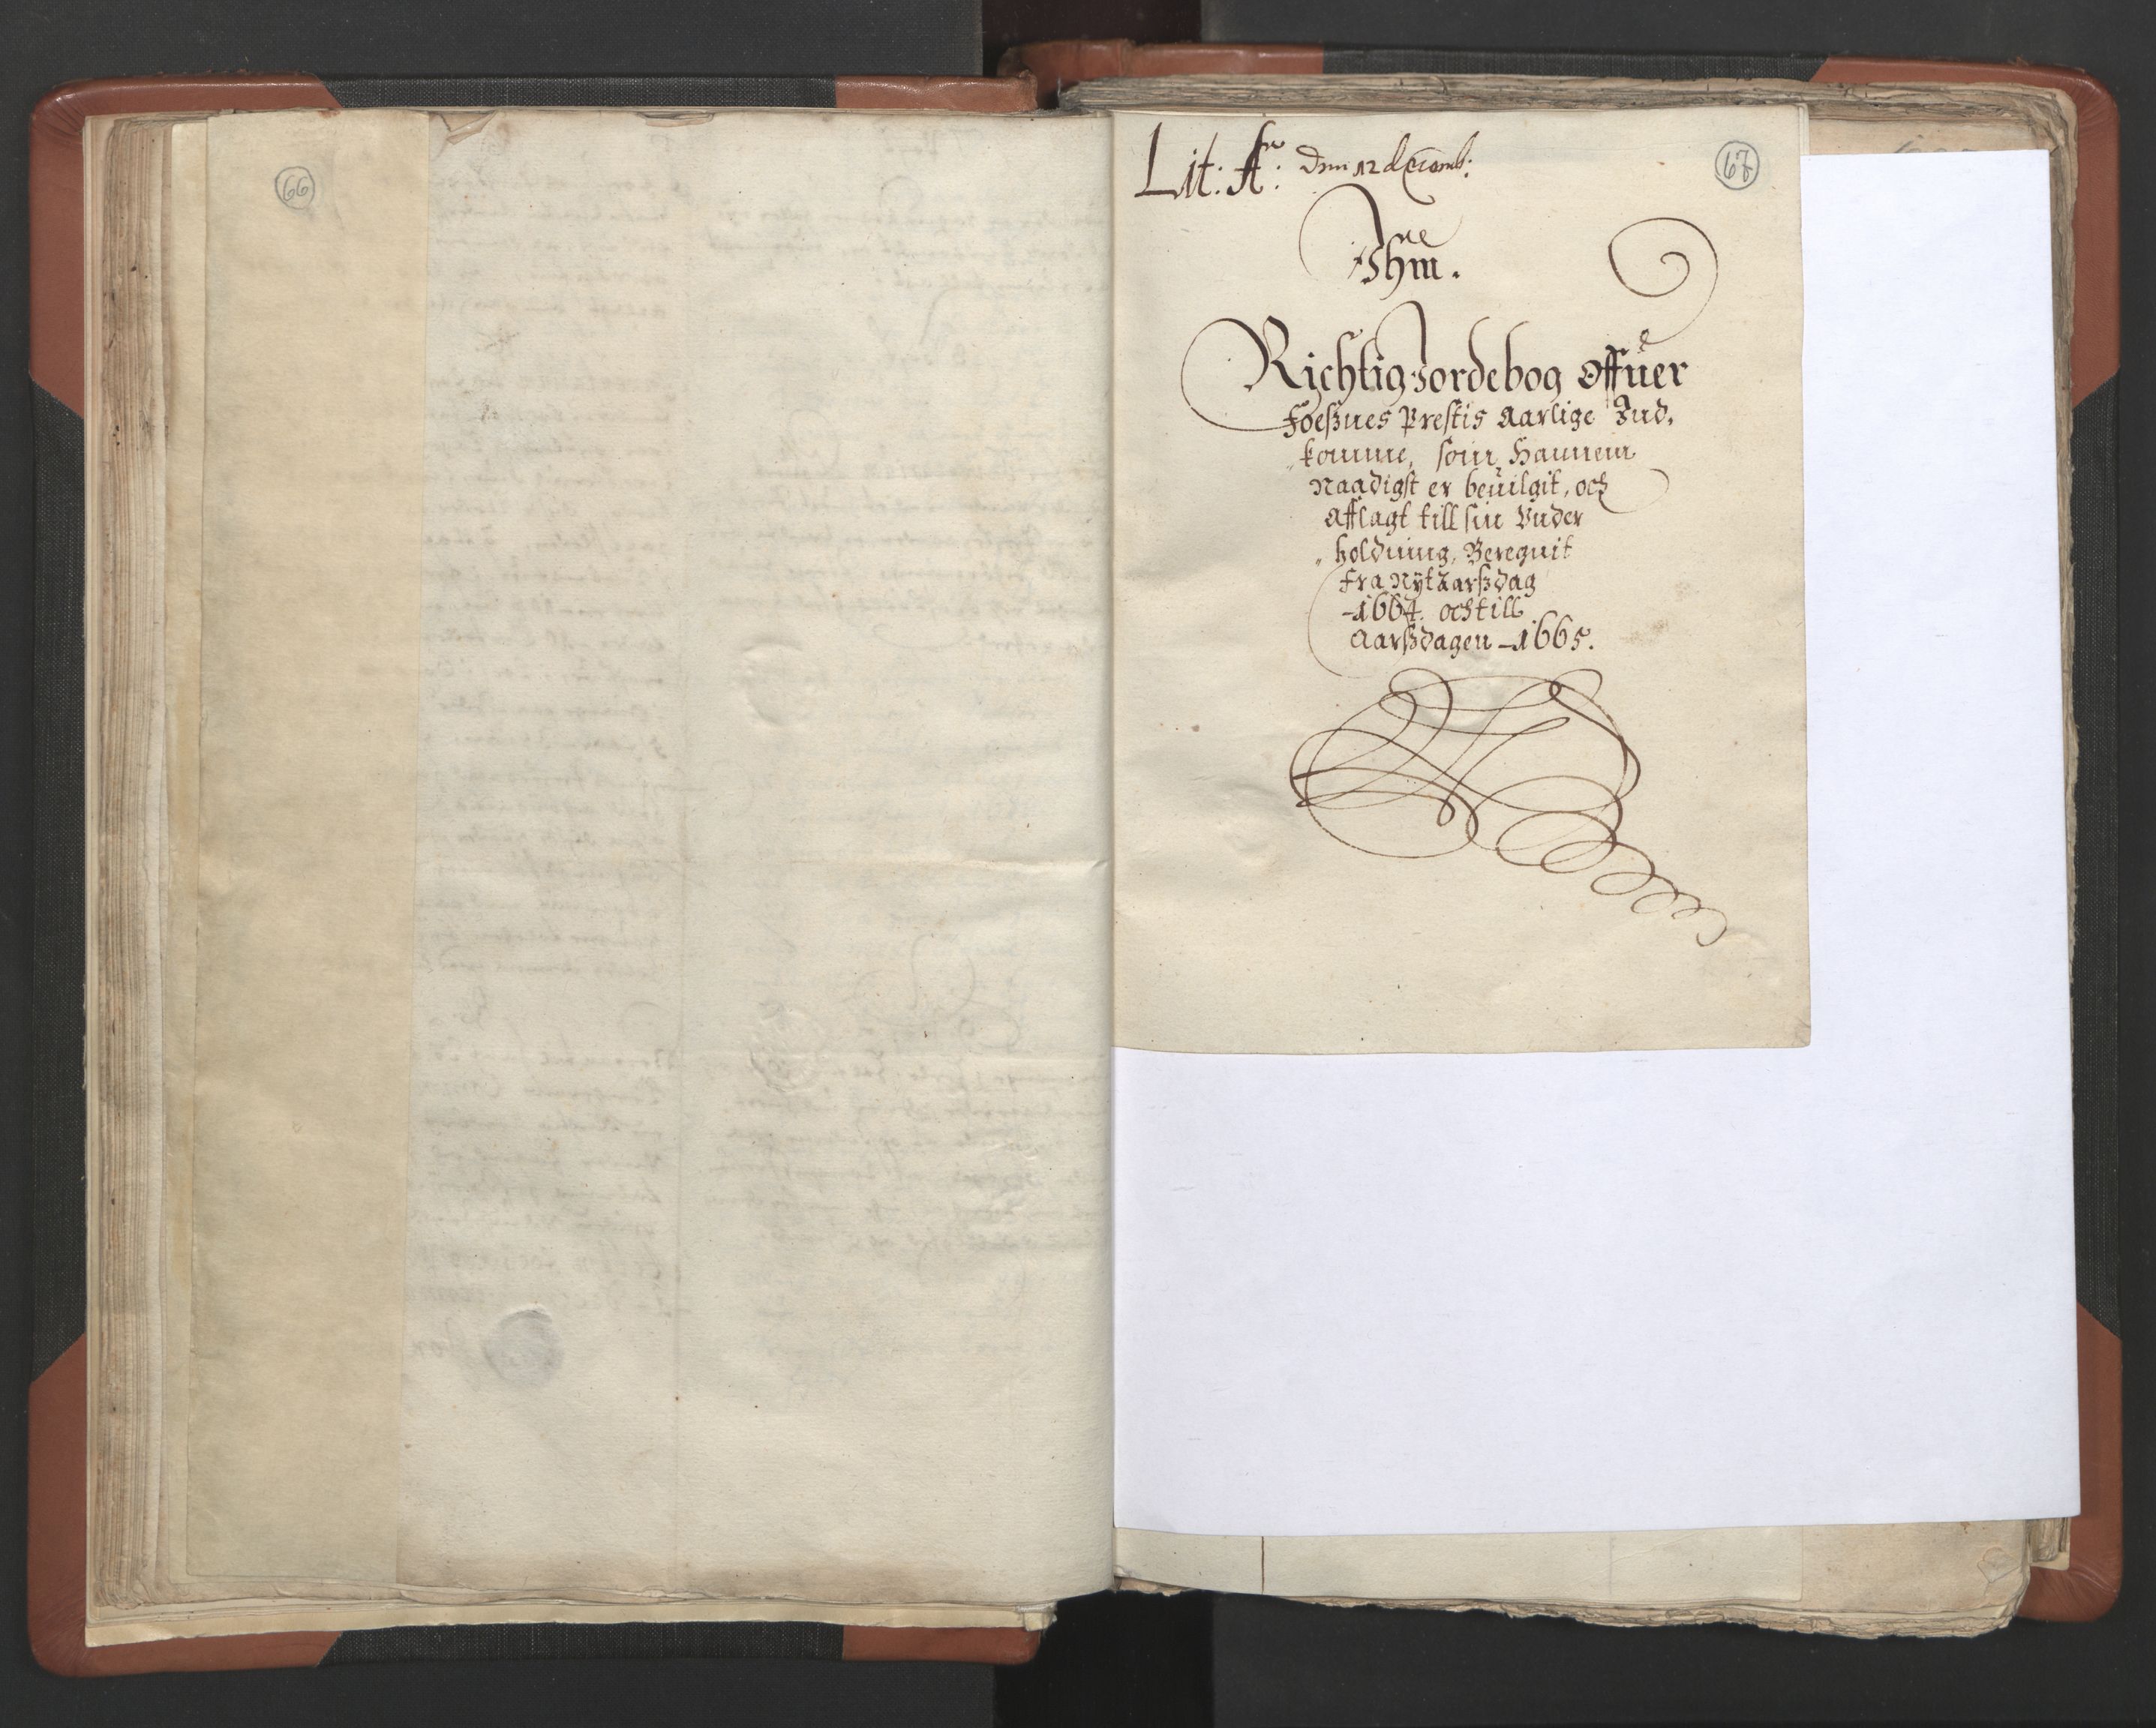 66
67
Lit: A: Dnn 12 decemb:
Jhm.
Richtig Jordebog offuer
Foeßnes Prestis Aarlige Ind,
„komme, som Hannem
Naadigst er beuilgit, och
Afflagt till sin Vnder
„holdning, Beregnit
Fra Nÿt Aarßdag
–1664. och till
Aarßdagen –1665.